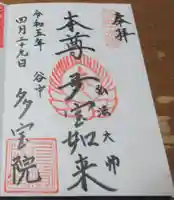 奉拝
本尊 多宝如来
弘法大師
谷中 多宝院
令和五年
四月二十九日